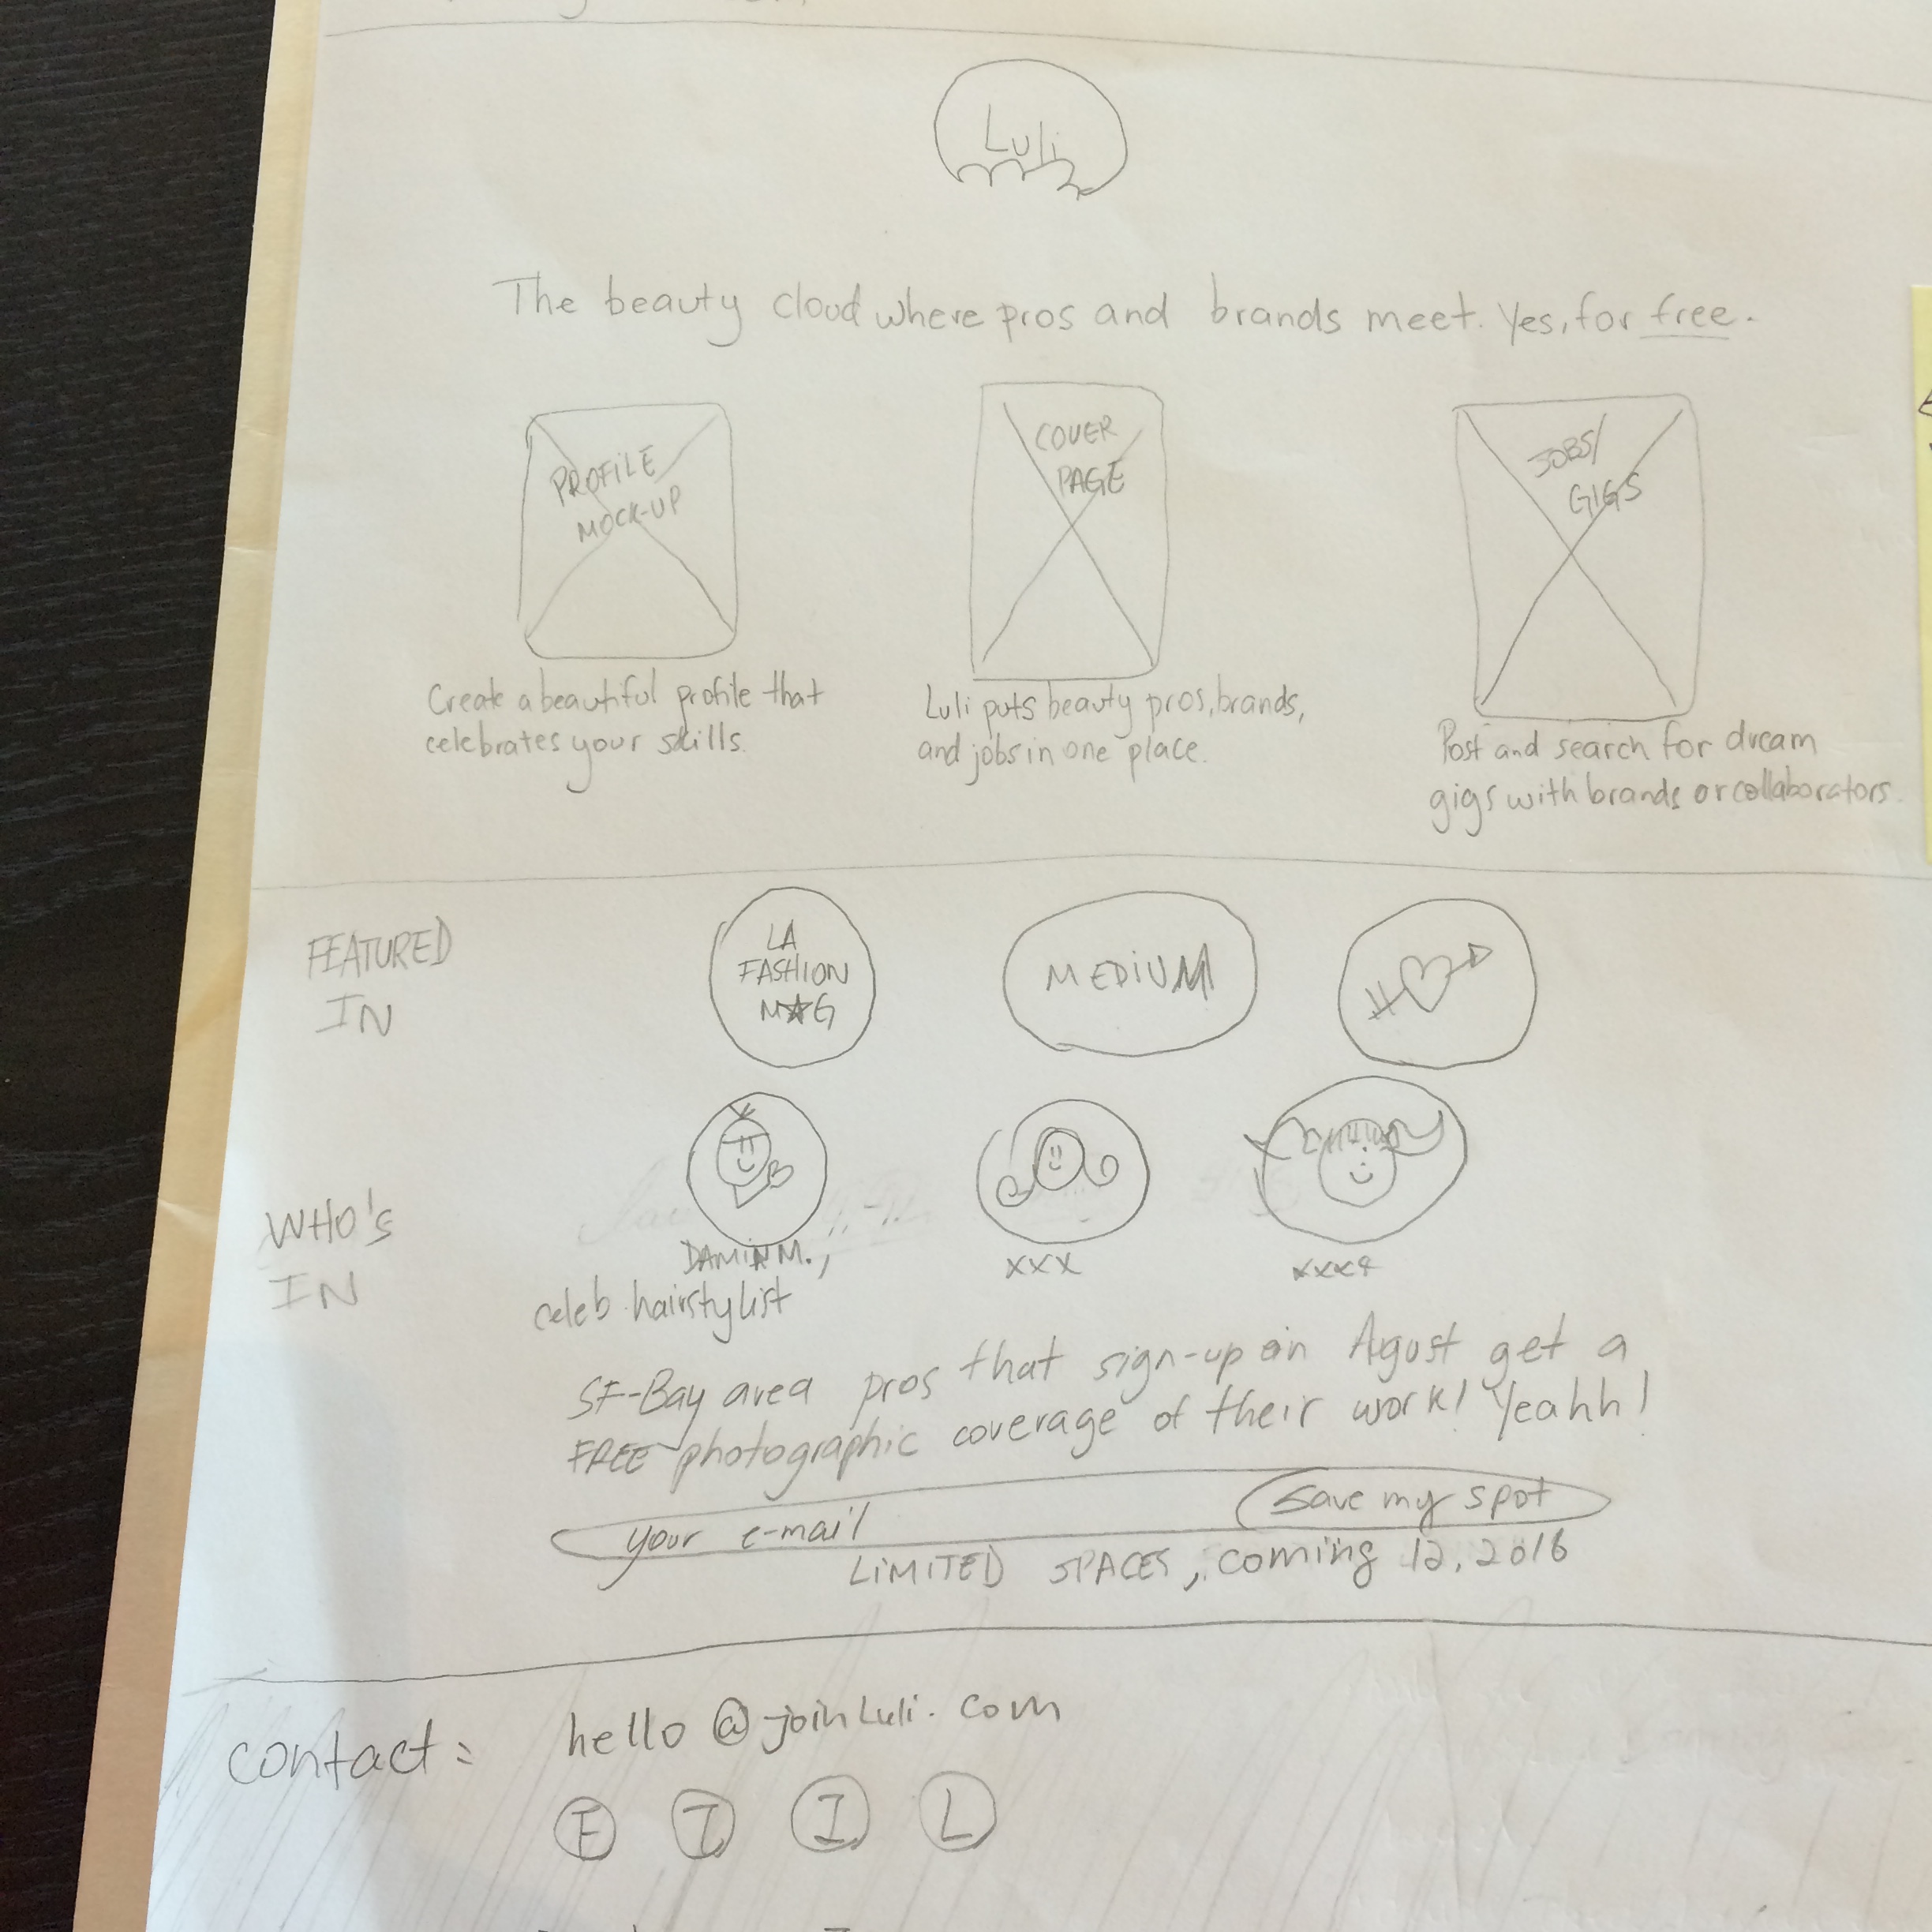 Luli
The beauty cloud where pros and brands meet. Yes, for free.
PROFILE
MOCK-UP
COVER
PAGE
JOBS/
GIGS
Create a beautiful profile that
celebrates your skills.
Luli puts beauty pros, brands,
and jobs in one place.
Post and search for dream
gigs with brands or collaborators.
FEATURED
IN
LA
FASHION
M★G
MEDIUM
WHO's
IN
DAMIAN M.,
celeb hairstylist
xxx
SF-Bay area pros that sign-up in Agust get a
FREE photographic coverage of their work! Yeahh!
your e-mail
Save my spot
LIMITED SPACES, coming 12, 2016
contact:
hello@joinLuli.com
F T I L